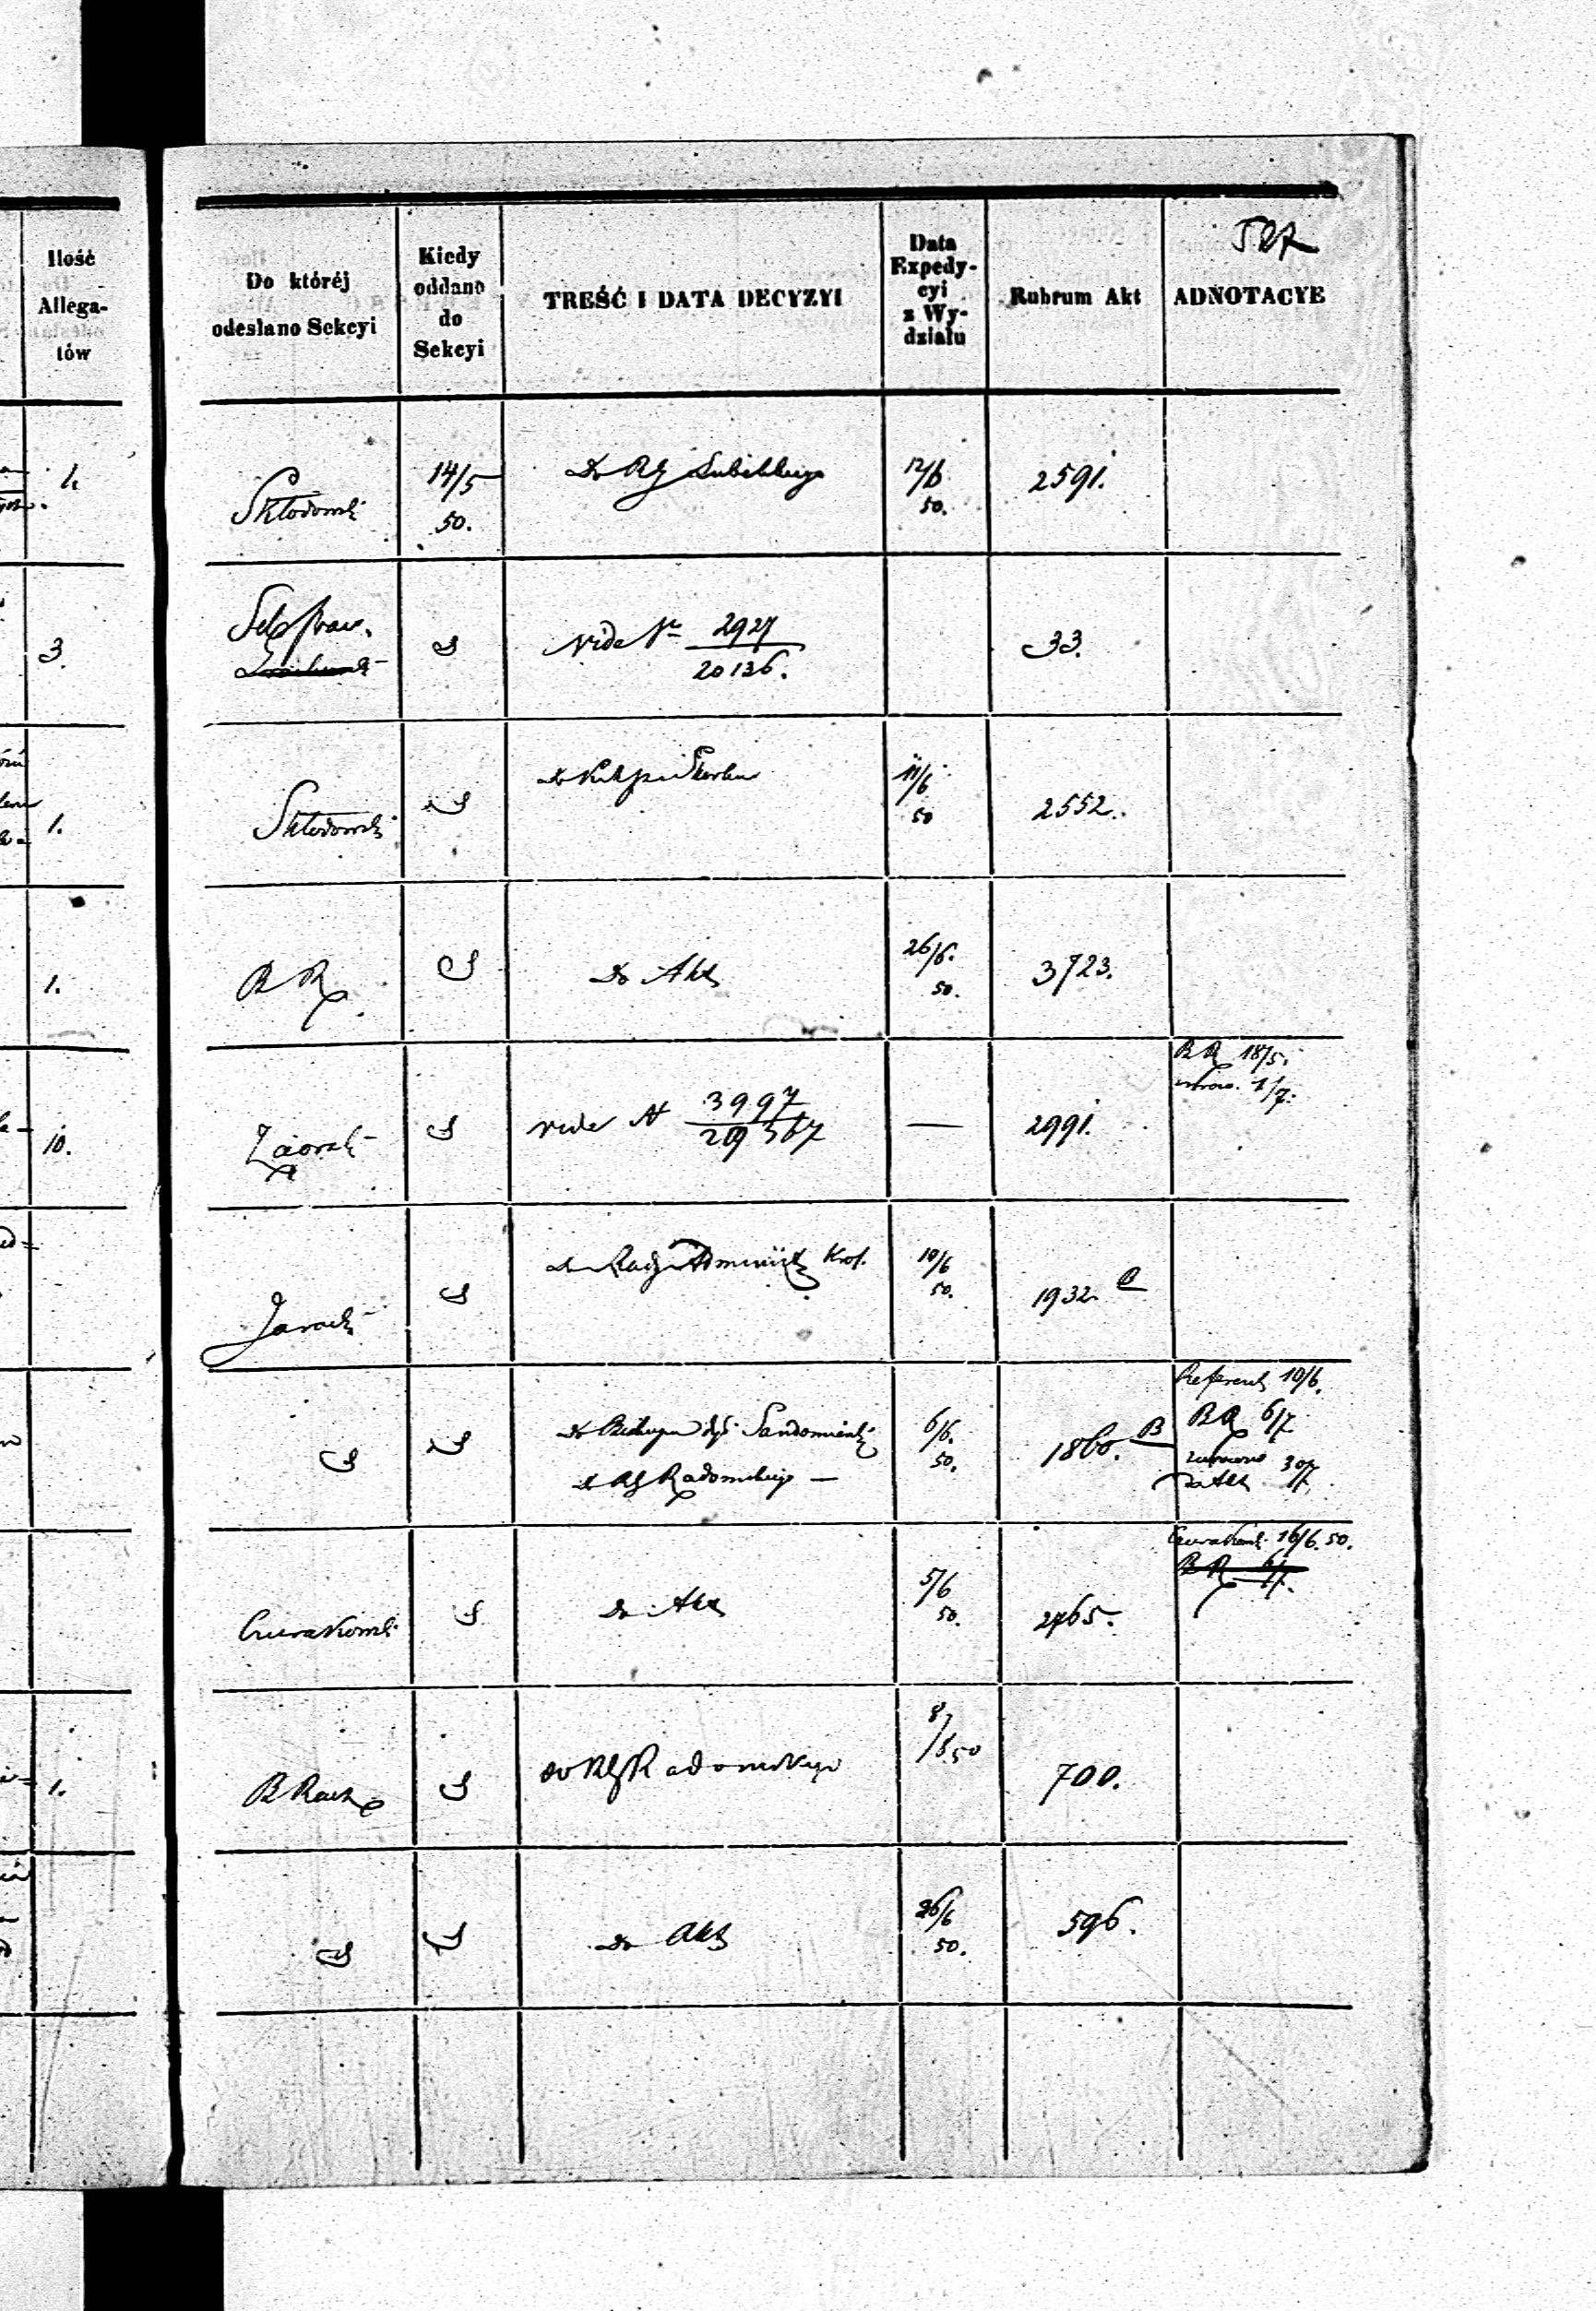 527
Ilość
Allega-
tów
Do której
odesłano Sekcyi
Kiedy
oddano
do
Sekcyi
TREŚĆ I DATA DECYZYI
Data
Expedy-
cyi
z Wy-
działu
Rubrum Akt
ADNOTACYE
1.
Skłodowski
14/5
50.
Do RG Lubelskiego
12/6
50.
2591.
3.
Sek. praw.
vide Nr 2927
20136.
33.
1.
Skłodowski
11/6
50
2552.
1.
B R
Do Akt
26/6.
50.
3723.
10.
Zaorski
vide N 3997
20367
—
2991.
B R 18/5.
1/7.
Jarocki
do Rady Administr. Król.
10/6
50.
1932.
do Biskupa dyec. Sandomiersk.
do RG Radomskiego —
6/6.
50.
1860. B
Referent 10/6.
B R 6/7
zwrócono 30/7
do Akt
Czurakowski
Do Akt
5/6
50.
2765.
Czurakowski 16/6. 50.
B R 6/7.
1.
B Rach
do RG Radomskiego
8/6 50
700.
do Akt
26/6
50.
596.